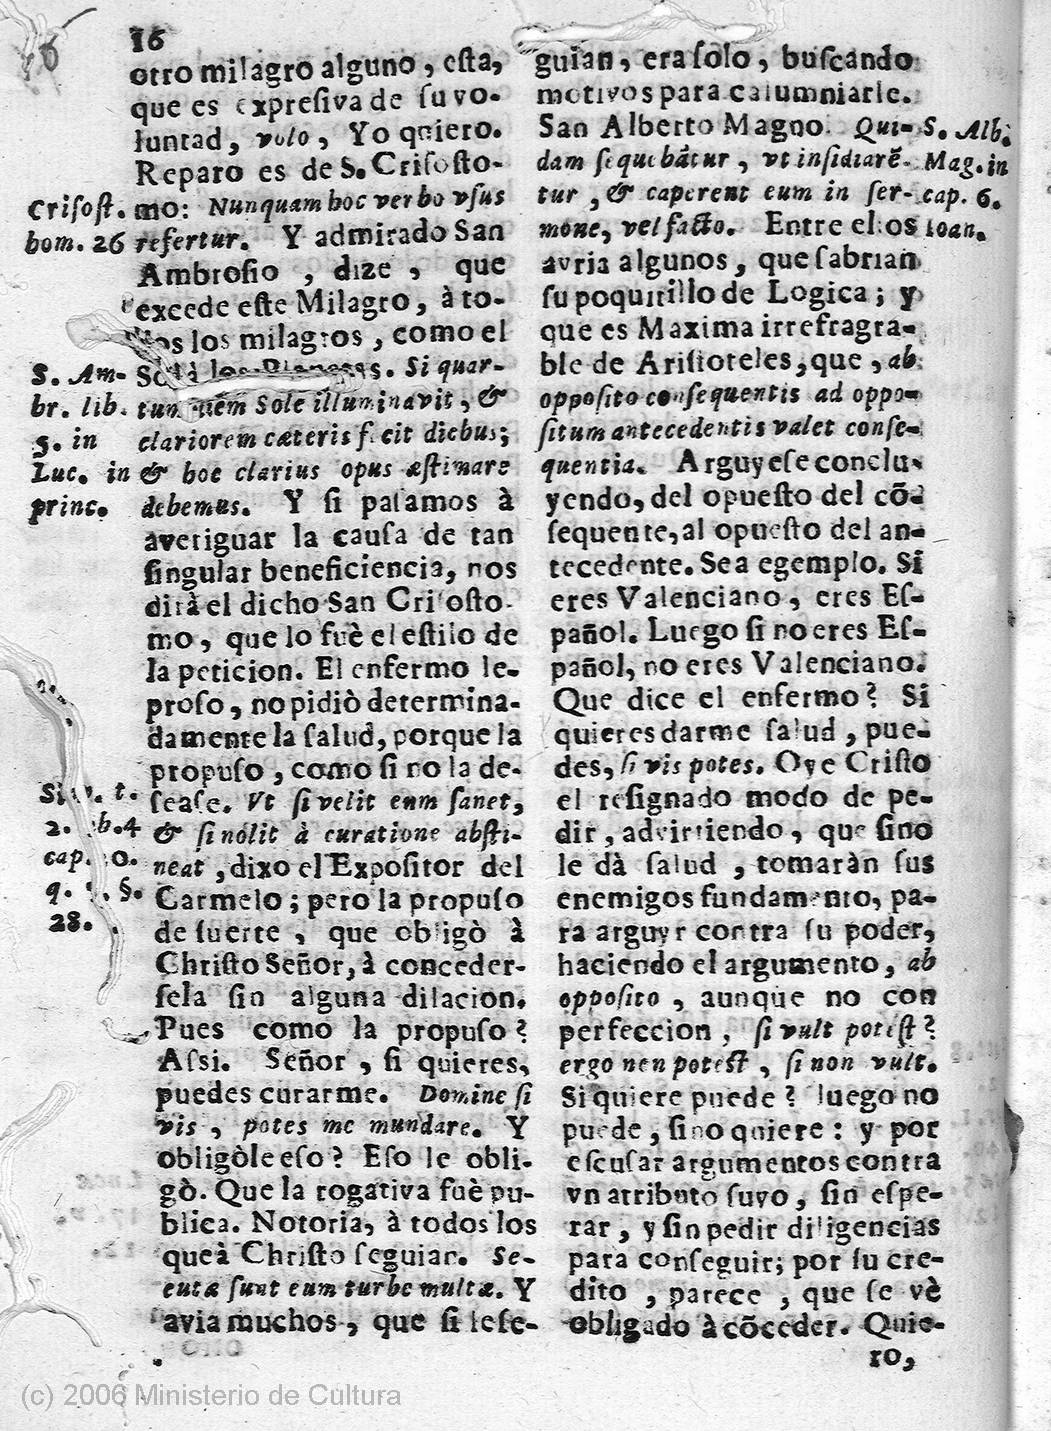 16
otro milagro alguno, esta,
que es expresiva de su vo-
luntad, volo, Yo quiero.
Reparo es de S. Crisosto-
mo: Nunquam hoc verbo vsus
refertur. Y admirado San
Ambrosio, dize, que
excede este Milagro, à to-
los milagros, como el
Sol à los Planetas. Si quar-
tum diem Sole illuminavit, &
clariorem cæteris fecit diebus;
& hoc clarius opus æstimare
debemus. Y si passamos à
averiguar la causa de tan
singular beneficiencia, nos
dirà el dicho San Crisosto-
mo, que lo fuè el estilo de
la peticion. El enfermo le-
proso, no pidiò determina-
damente la salud, porque la
propuso, como si no la de-
sease. Vt si velit eum sanet,
& si nolit à curatione absti-
neat, dixo el Expositor del
Carmelo; pero la propuso
de suerte, que obligò à
Christo Señor, à conceder-
sela sin alguna dilacion.
Pues como la propuso?
Assi. Señor, si quieres,
puedes curarme. Domine si
vis, potes me mundare. Y
obligòle eso? Eso le obli-
gò. Que la rogativa fuè pu-
blica. Notoria, à todos los
que à Christo seguian. Se-
cutæ sunt eum turbe multæ. Y
avia muchos, que si le se-
Crisost.
hom. 26
S. Am-
br. lib.
5. in
Luc. in
princ.
t.
2. b. 4
cap. 10.
q. §.
28.
guian, era solo, buscando
motivos para calumniarle.
San Alberto Magno. Qui-
dam sequebãtur, vt insidiarẽ-
tur, & caperent eum in ser-
mone, vel facto. Entre ellos
avria algunos, que sabrian
su poquitillo de Logica; y
que es Maxima irrefragra-
ble de Aristoteles, que, ab
opposito consequentis ad oppo-
situm antecedentis valet conse-
quentia. Arguyese conclu-
yendo, del opuesto del cõ-
sequente, al opuesto del an-
tecedente. Sea egemplo. Si
eres Valenciano, eres Es-
pañol. Luego si no eres Es-
pañol, no eres Valenciano.
Que dice el enfermo? Si
quieres darme salud, pue-
des, si vis potes. Oye Cristo
el resignado modo de pe-
dir, advirtiendo, que sino
le dà salud, tomaràn sus
enemigos fundamento, pa-
ra arguyr contra su poder,
haciendo el argumento, ab
opposito, aunque no con
perfeccion, si vult potest?
ergo non potest, si non vult.
Si quiere puede? luego no
puede, sino quiere: y por
escusar argumentos contra
vn atributo suyo, sin espe-
rar, y sin pedir diligencias
para conseguir; por su cre-
dito, parece, que se vè
obligado à cõceder. Quie-
ro,
S. Alb.
Mag. in
cap. 6.
Ioan.
(c) 2006 Ministerio de Cultura